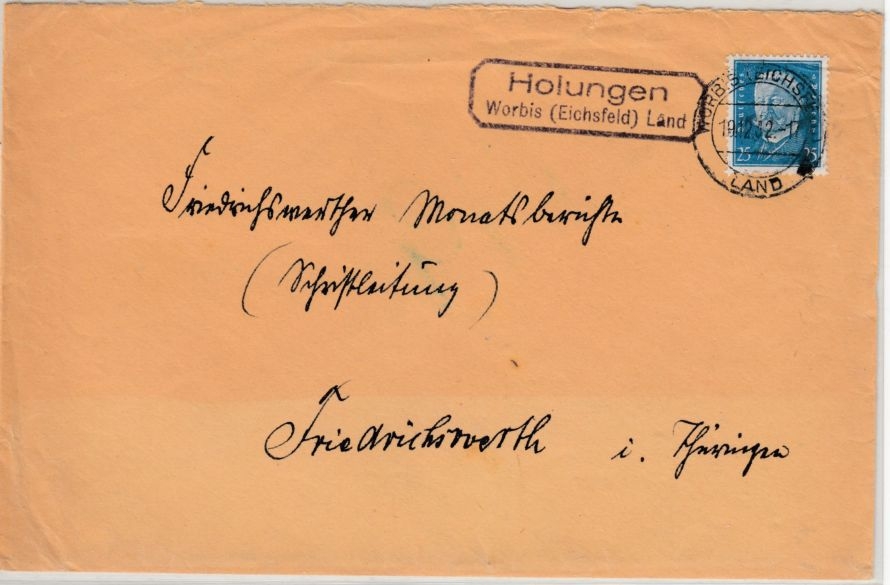 Holungen
Worbis (Eichsfeld) Land
WORBIS (EICHSF
19.12.32.-17
LAND
25 25
Friedrichswerther Monatsberichte
(Schriftleitung)
Friedrichswerth i. Thüringen